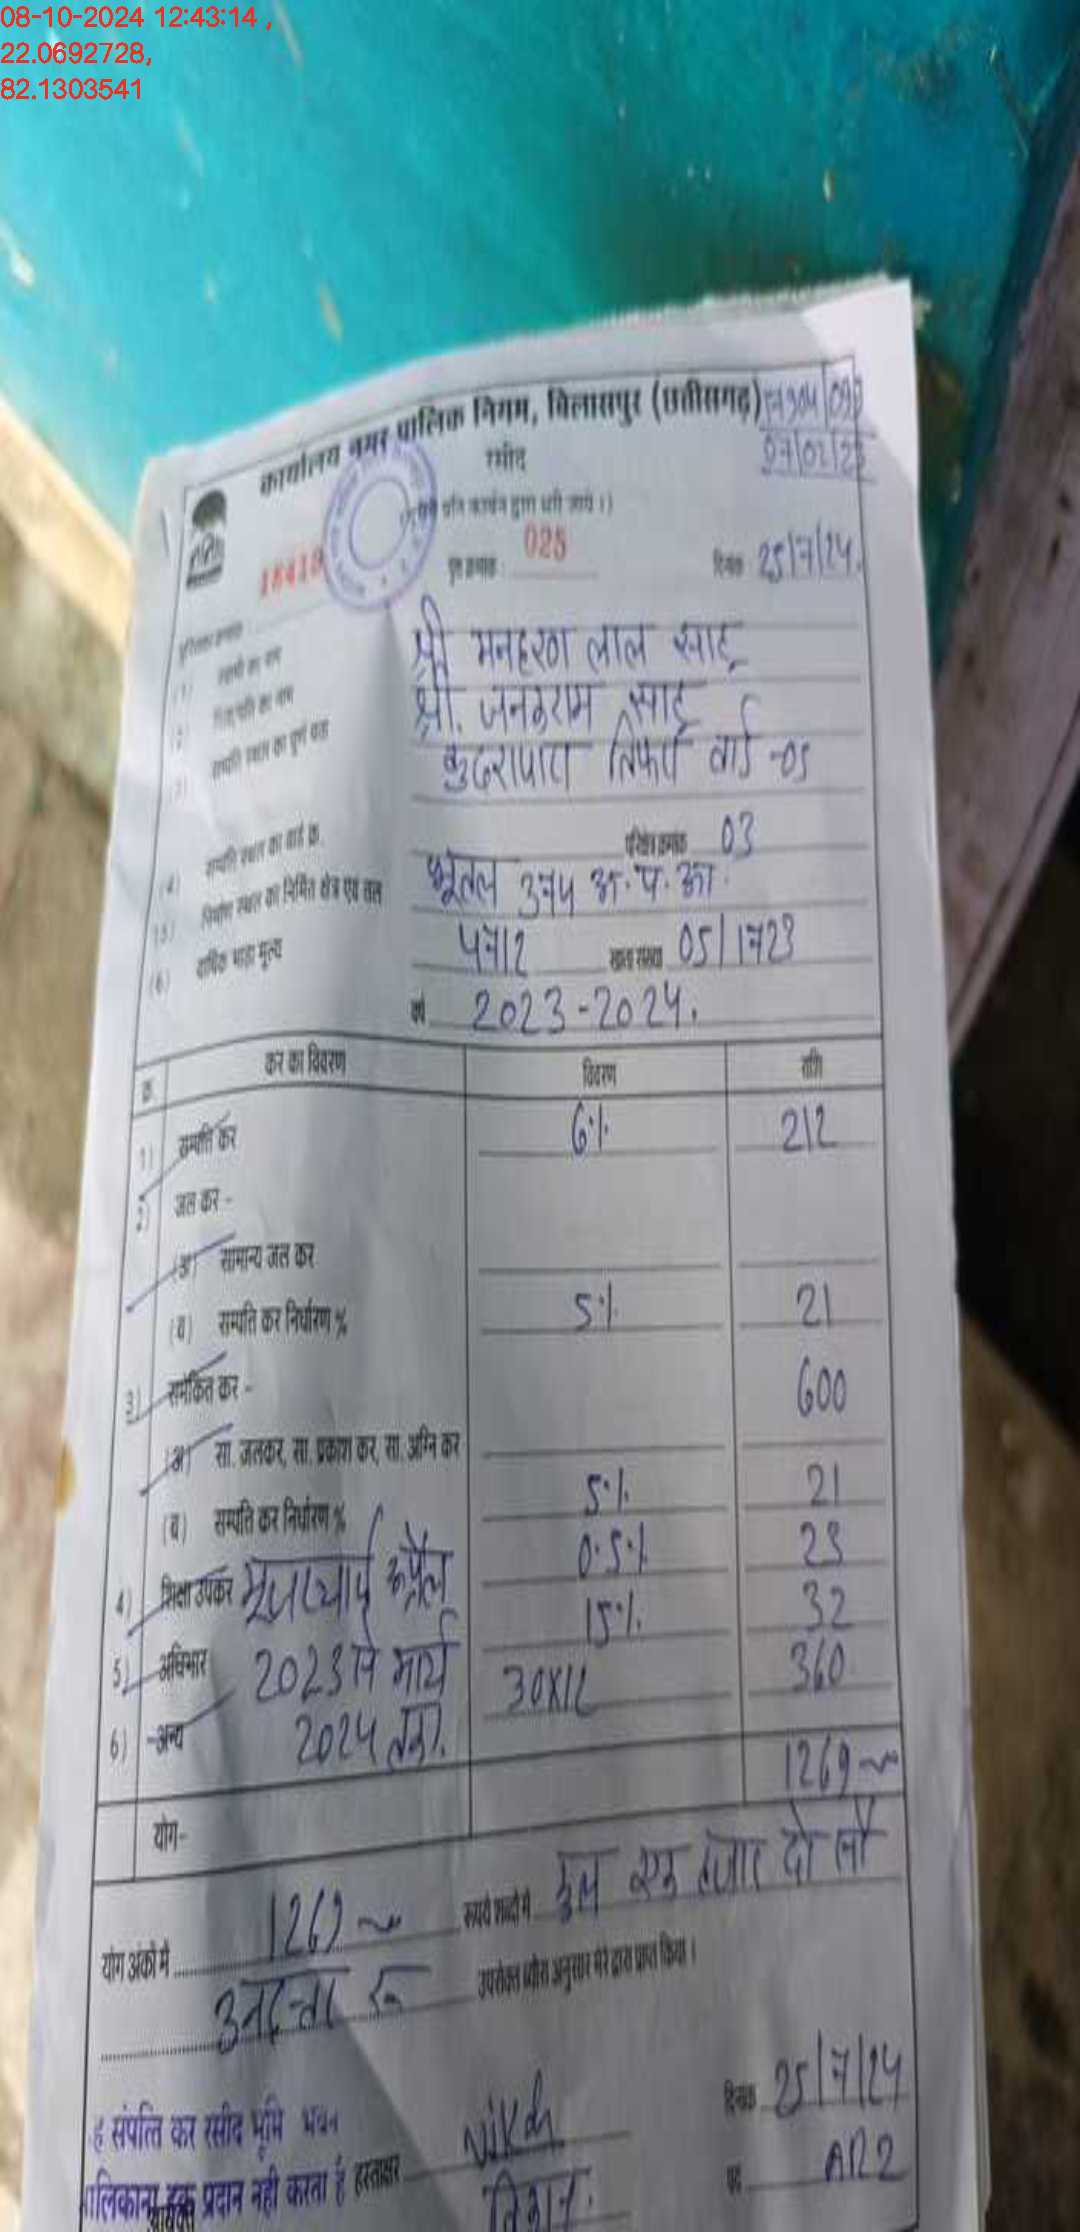 08-10-2024 12:43:14 ,
22.0692728,
82.1303541
कार्यालय नगर पालिक निगम, बिलासपुर (छत्तीसगढ़)
रसीद
025
दिनांक 25/7/24.
(1) स्वामी का नाम श्री मनहरण लाल साहू
(2) पिता/पति का नाम श्री. जनकराम साहू
(3) सम्पत्ति स्थल का पूर्ण पता कुदरापारा तिफरा वार्ड -05
(4) सम्पत्ति स्थल का वार्ड क्र. परिक्षेत्र क्रमांक 03
(5) निर्माण स्थल का निर्मित क्षेत्र एवं तल भूतल
(6) वार्षिक भाड़ा मूल्य 4712 खाता संख्या 05/1723
वर्ष 2023-2024.
क्र. कर का विवरण विवरण राशि
1) सम्पत्ति कर 6% 212
2) जल कर -
(अ) सामान्य जल कर
(ब) सम्पत्ति कर निर्धारण % 5% 21
3) समेकित कर - 600
(अ) सा. जलकर, सा. प्रकाश कर, सा. अग्नि कर
(ब) सम्पत्ति कर निर्धारण % 5% 21
4) शिक्षा उपकर 0.5% 23
5) अधिभार 2023 से मार्च 15% 32
6) अन्य 2024 तक. 30x12 360
योग- 1269
योग अंकों में 1269 रूपये शब्दों में कुल एक हजार दो सौ
उनहत्तर रू उपरोक्त ब्यौरा अनुसार मेरे द्वारा प्राप्त किया ।
दिनांक 25/7/24
संपत्ति कर रसीद भूमि भवन
हक प्रदान नही करता है हस्ताक्षर
पद AR2